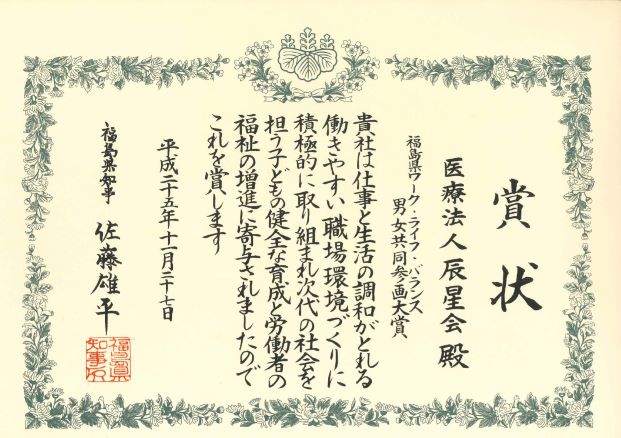 賞状
医療法人辰星会殿
福島県ワーク・ライフ・バランス
男女共同参画大賞
貴社は仕事と生活の調和がとれる
働きやすい職場環境づくりに
積極的に取り組まれ次代の社会を
担う子どもの健全な育成と労働者の
福祉の増進に寄与されましたので
これを賞します
平成二十五年十一月二十七日
福島県知事 佐藤雄平
福島県
知事印